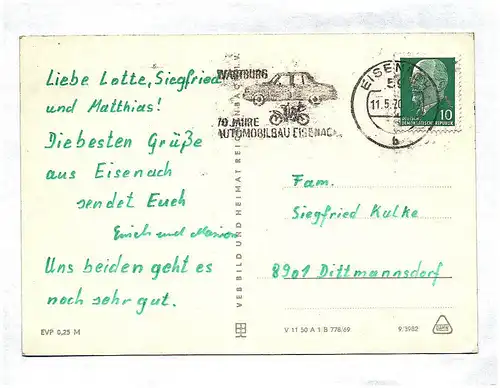 Liebe Lotte, Siegfried
und Matthias!
Diebesten Grüße
aus Eisenach
sendet Euch
Erich und Marion
Uns beiden geht es
noch sehr gut.
EVP 0,25 M
VEB BILD UND HEIMAT REI
WARTBURG
70 JAHRE
AUTOMOBILBAU EISENACH
EISEN
59
11.5.70
b
10
DEUTSCHE
DEMOKRATISCHE REPUBLIK
Fam.
Siegfried Kulke
8901 Dittmannsdorf
V 11 50 A 1 B 778/69
9/3982